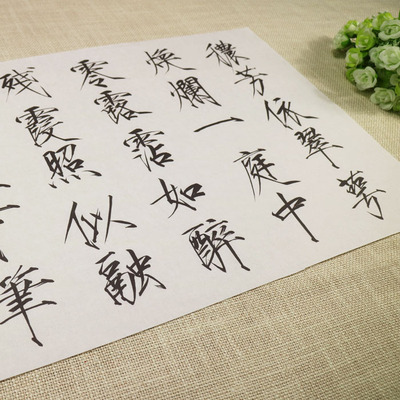 穠芳依翠萼
煥爛一庭中
零露霑如醉
殘霞照似融
筆